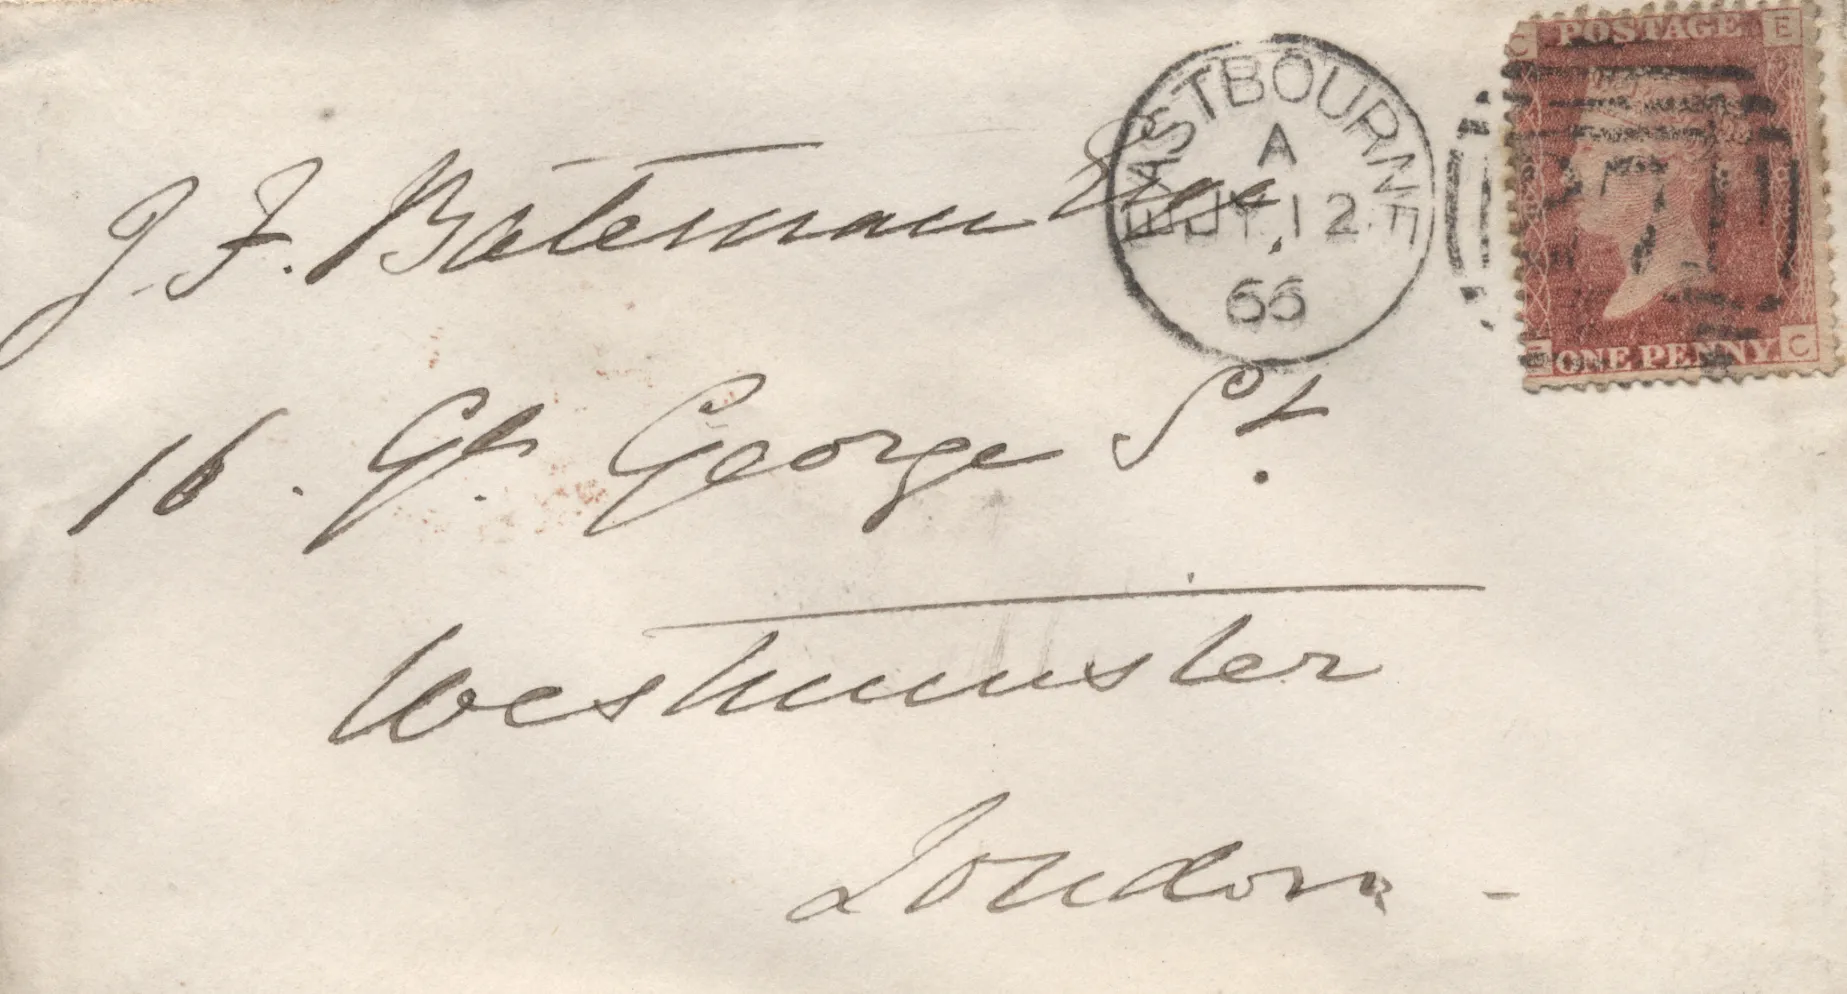 J. F. Bateman Esqre
16. Gt. George St.
Westminster
London -
EASTBOURNE
A
JY 12
66
C POSTAGE E
E ONE PENNY C